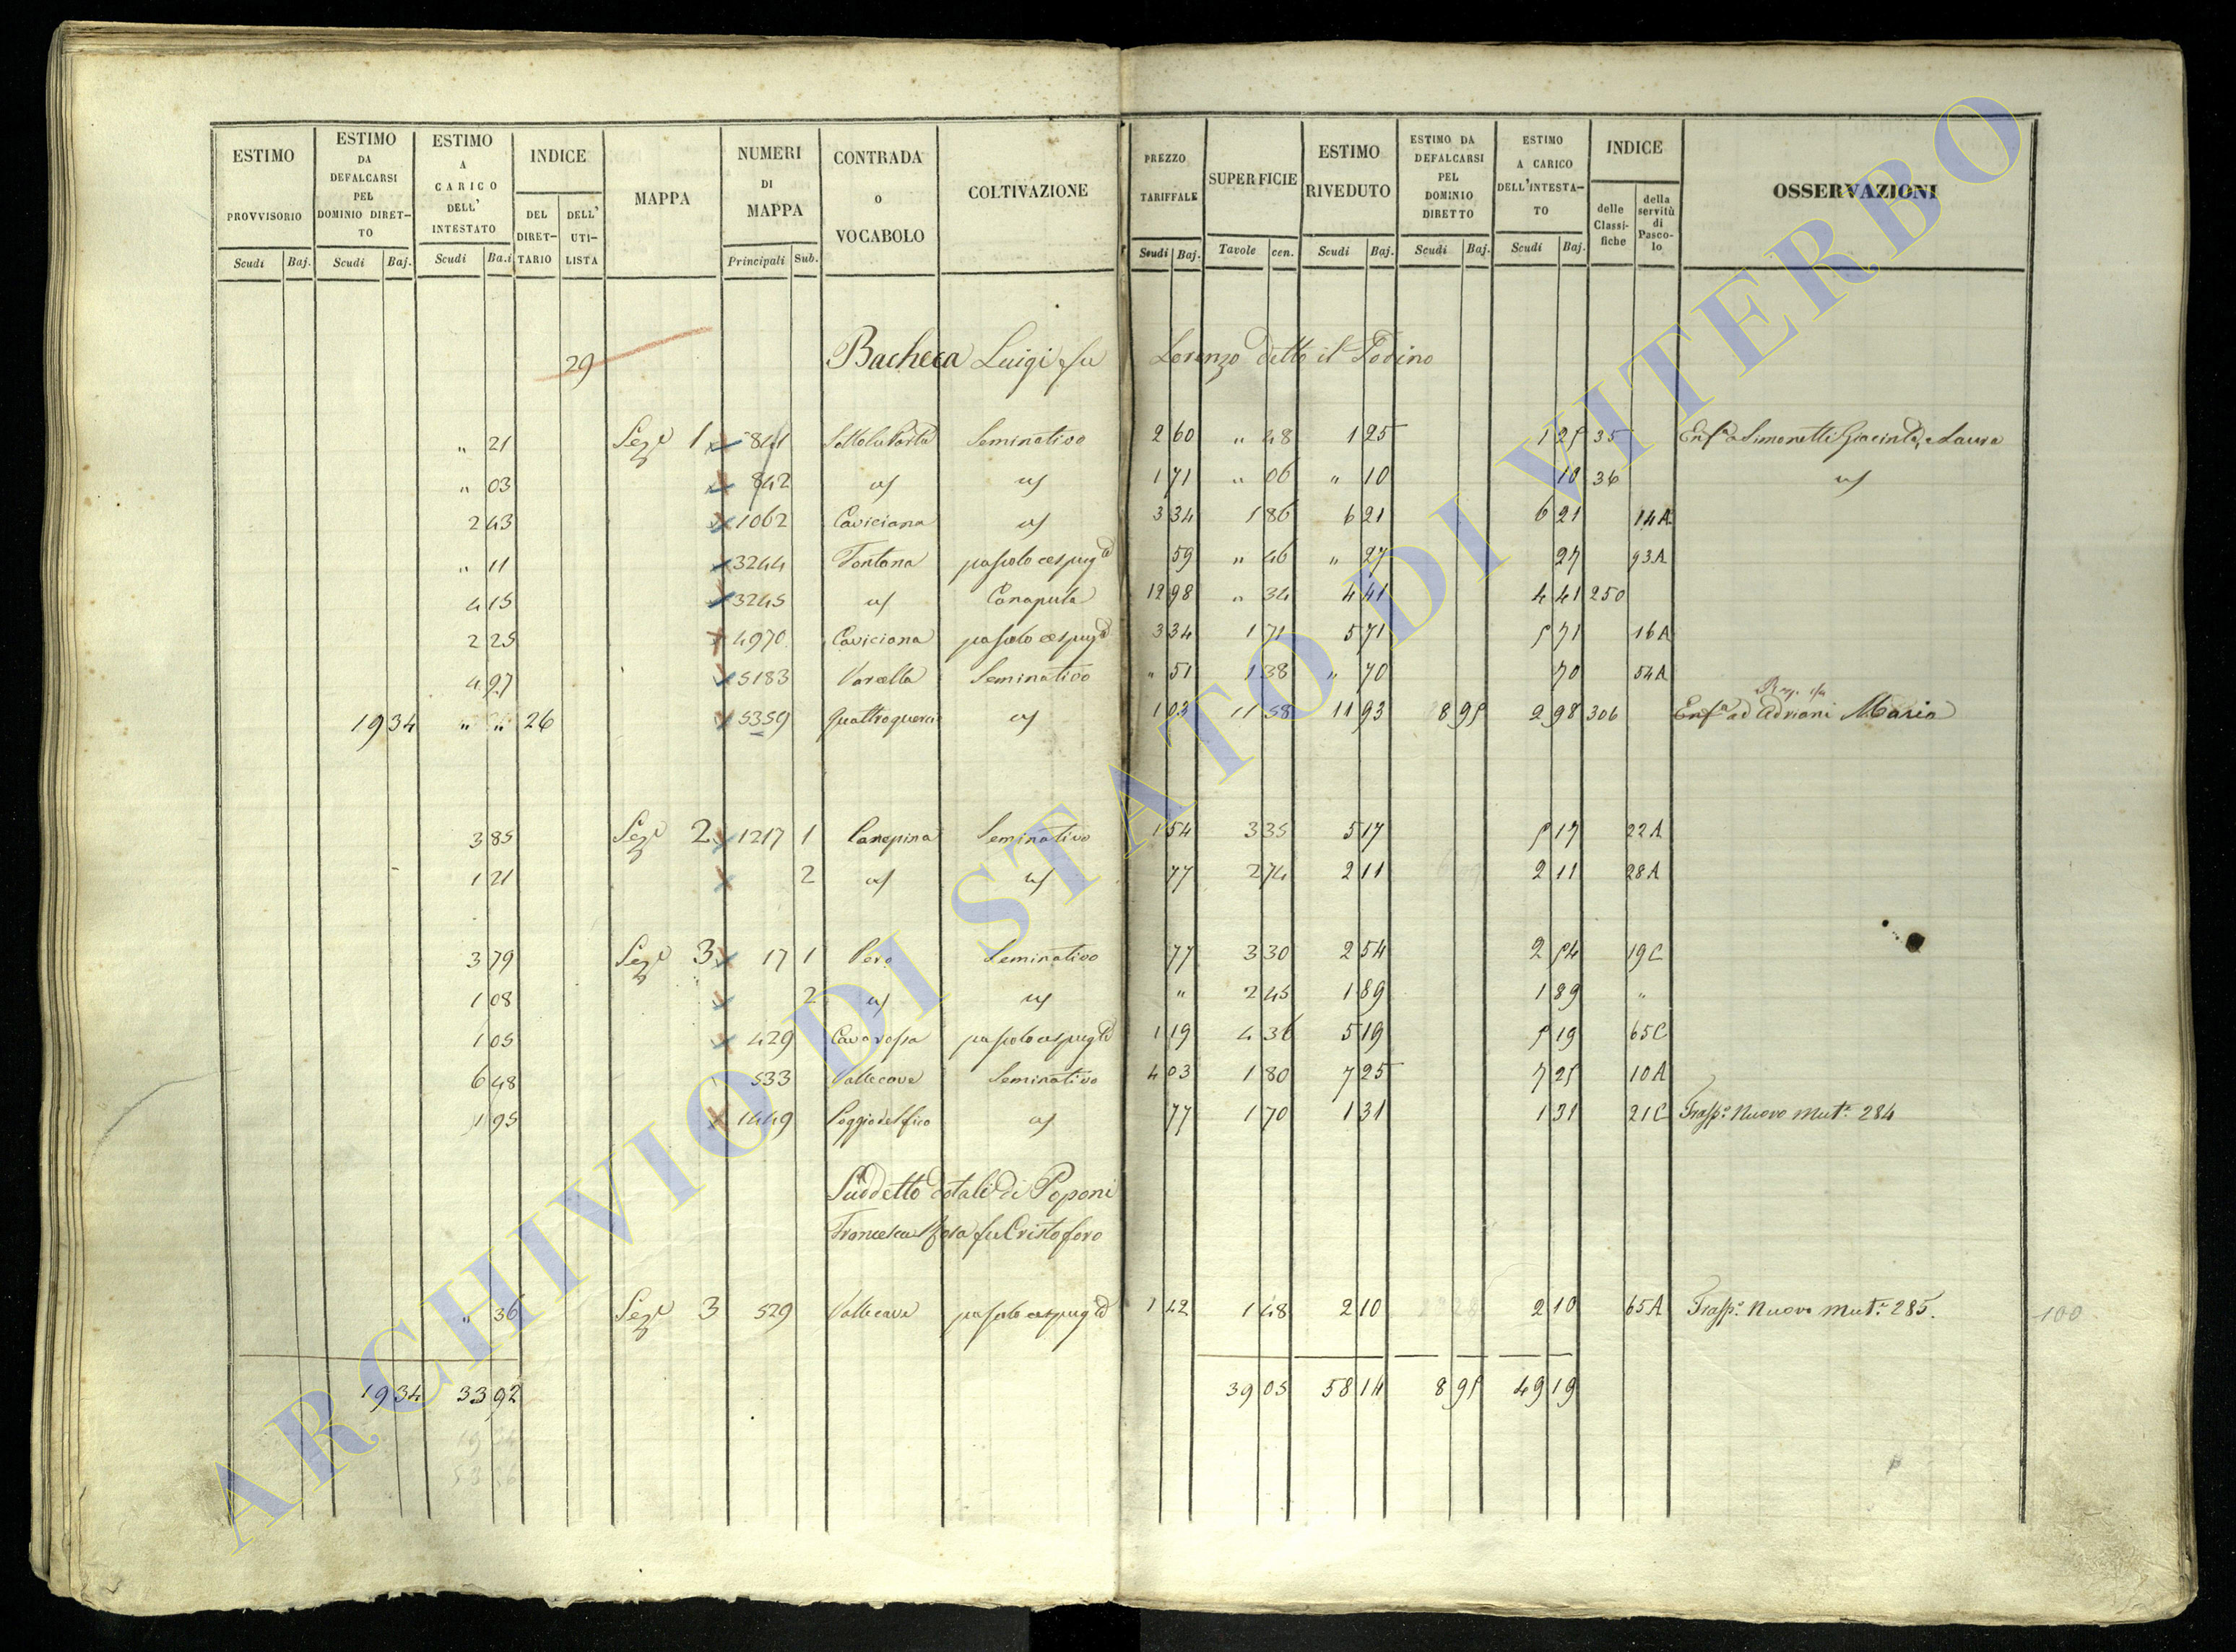 ESTIMO PROVVISORIO Scudi Baj.
ESTIMO DA DEFALCARSI PEL DOMINIO DIRET-TO Scudi Baj.
ESTIMO A CARICO DELL' INTESTATO Scudi Ba.i
INDICE DEL DIRET-TARIO DELL' UTI-LISTA
MAPPA
NUMERI DI MAPPA Principali Sub.
CONTRADA o VOCABOLO
COLTIVAZIONE
PREZZO TARIFFALE Scudi Baj.
SUPERFICIE Tavole cen.
ESTIMO RIVEDUTO Scudi Baj.
ESTIMO DA DEFALCARSI PEL DOMINIO DIRETTO Scudi Baj.
ESTIMO A CARICO DELL'INTESTA-TO Scudi Baj.
INDICE delle Classi-fiche della servitù di Pasco-lo
OSSERVAZIONI
29 Bacheca Luigi fu Lorenzo detto il
" 21 Sez.e 1 841 Sotto la Porta Seminativo 2 60 " 48 1 25 1 25 35 Enf.a Simonetti Giacinto e Laura
" 03 842 us us 1 71 " 06 " 10 10 36 us
2 43 1062 Caviciana us 3 34 1 86 6 21 6 21 14A
" 11 3244 Fontana pascolo cespug.to 59 " 46 " 27 27 93A
4 15 3245 us Canapula 12 98 " 34 4 41 4 41 250
2 25 4970 Caviciana pascolo cespug.to 3 34 1 71 5 71 5 71 16A
4 97 5183 Varcella Seminativo " 51 1 38 " 70 70 54A
19 34 " " 26 5359 Quattroquerci us 1 03 11 58 11 93 8 95 2 98 306 Enf.a ad Adriani Maria
3 85 Sez.e 2 1217 1 Canepina Seminativo 1 54 3 35 5 17 5 17 22A
1 21 2 us us 77 2 74 2 11 2 11 28A
3 79 Sez.e 3 17 1 Pero Seminativo 77 3 30 2 54 2 54 19C
1 08 2 us us " 2 45 1 89 1 89 "
1 05 429 Cavarossa pascolo cespug.to 1 19 4 36 5 19 5 19 65C
6 48 533 Vallecava Seminativo 4 03 1 80 7 25 7 25 10A
1 95 1449 Poggio del fico us 77 1 70 1 31 1 31 21C Trasp.o Nuovo Mut.e 284
Suddetto dotali di Poponi
Francesca Rosa fu Cristoforo
" 36 Sez.e 3 529 Vallecava pascolo cespug.to 1 42 1 48 2 10 2 10 65A Trasp.o Nuovo Mut.e 285.
100
19 34 33 92 39 05 58 14 8 95 49 19
ARCHIVIO DI STATO DI VITERBO